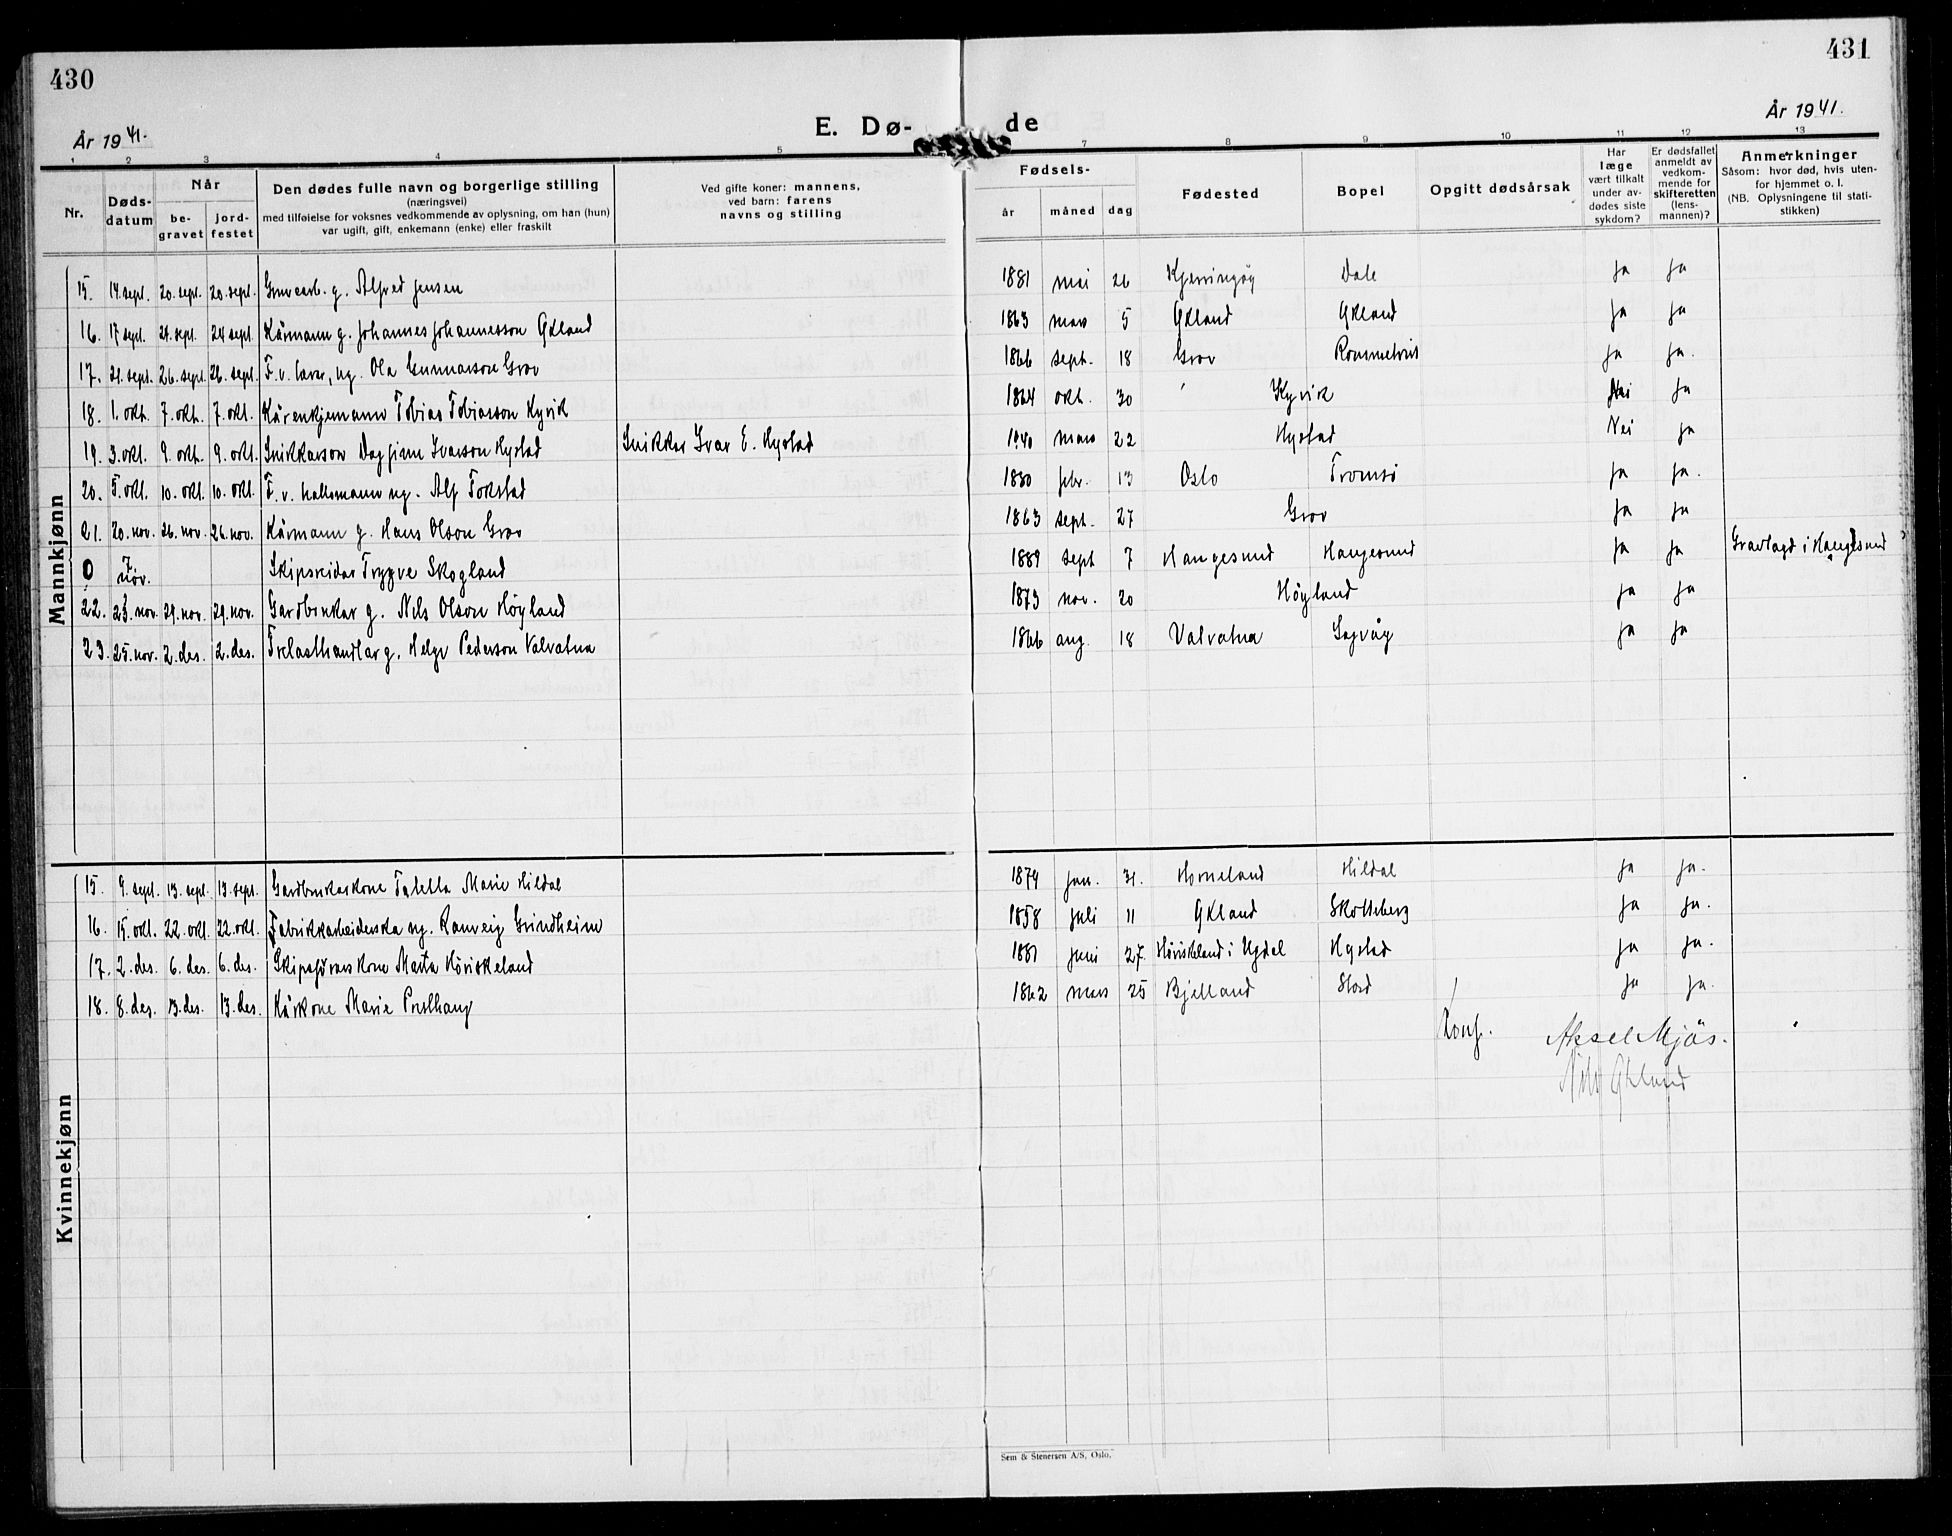 430
431
År 1941.
E. Dø-
de
År 1941.
1 2 3 4 5 7 8 9 10 11 12 13
Nr.
Døds-
datum
Når
be-
gravet
jord-
festet
Den dødes fulle navn og borgerlige stilling
(næringsvei)
med tilføielse for voksnes vedkommende av oplysning, om han (hun)
var ugift, gift, enkemann (enke) eller fraskilt
Ved gifte koner: mannens,
ved barn: farens
navns og stilling
Fødsels-
år
måned
dag
Fødested
Bopel
Opgitt dødsårsak
Har
læge
vært tilkalt
under av-
dødes siste
sykdom?
Er dødsfallet
anmeldt av
vedkom-
mende for
skifteretten
(lens-
mannen)?
Anmerkninger
Såsom: hvor død, hvis uten-
for hjemmet o. l.
(NB. Oplysningene til stati-
stikken)
Mannkjønn
15. 14. sept. 20. sept. 20. sept. Gruvearb. g. Alfred Jensen 1881 mai 26 Kjerringøy Dale ja ja
16. 17 sept. 24. sept. 24 sept. Kårmann g. Johannes Johannesson Økland 1863 mars 5 Økland Økland ja ja
17. 21. sept. 26. sept. 26. sept. F. v. lærer, ug. Ola Gunnarson Grov 1866 sept. 18 Grov Rommetveit ja ja.
18. 1. okt. 7. okt. 7. okt. Kårenkjemann Tobias Tobiasson Kyvik 1864 okt. 30 Kyvik Nei ja
19. 3. okt. 9. okt. 9. okt. Snikkarson Dagfinn Ivarson Hystad Snikkar Ivar E. Hystad 1940 mars 22 Hystad Nei ja
20. 5. okt. 10. okt. 10. okt. F. v. ug. Alf Tokstad 1880 febr. 13 Oslo Tromsö ja ja.
21. 20. nov. 26. nov. 26. nov. Kårmann g. Hans Olson Grov 1863 sept. 27 Grov ja ja
0 7 nov. Skipsreidar Tryggve Skogland 1889 sept 7 Haugesund Haugesund ja ja Gravlagd i Haugesund
22. 23. nov. 29. nov. 29. nov. Gardbrukar g. Nils Olson Höyland 1873 nov. 20 Höyland ja ja
23. 25. nov. 2. des. 2. des. Trelasthandlar g. Helge Pederson Valvatna 1866 aug. 18 Valvatna Sagvåg ja ja
Kvinnekjønn
15. 9. sept. 13. sept. 13. sept. Gardbrukarkone Taletta Marie Hildal 1879 jan. 31. Horneland Hildal ja ja.
16. 15. okt. 22. okt. 22. okt. Fabrikkarbeiderska ug. Ranveig Grindheim 1858 juli 11 Økland Skotteberg ja ja.
17. 2. des. 6. des. 6. des. Skipsförarkone Marta Höviskeland 1881 juni 27. Höviskeland i Ugdal Hystad ja ja.
18. 8. des. 13. des. 13. des. Kårkone Marie Presthaug 1862 mars 25 Bjelland Stord ja ja.
Konf. Aksel Mjös.
Nils Økland
Sem & Stenersen A/S, Oslo.